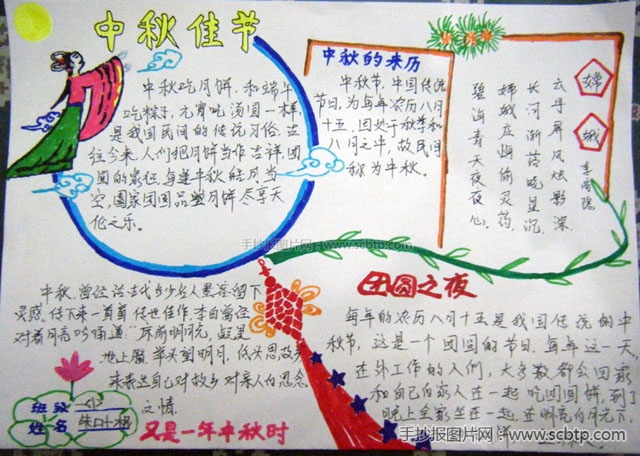 中秋佳节
中秋吃月饼,和端午
吃粽子,元宵吃汤圆一样
是我国民间的传统习俗。古
往今来,人们把月饼当作吉祥,团
圆的象征,每逢中秋皓月当
空,国家团圆品尝月饼尽享天
伦之乐。
中秋的来历
中秋节,中国传统
节日,为每年农历八月
十五,因处于秋季和
八月之中,故民间
称为中秋。
嫦娥
李商隐
云母屏风烛影深
长河渐落晓星沉
嫦娥应悔偷灵药
碧海青天夜夜心。
手抄报图片网:www.scbtp.com
中秋,曾经给古代多少名人墨客留下
灵感,传下来一首首传世佳作,李白曾经
对着月亮吟诵道“床前明月光,疑是
地上霜,举头望明月,低头思故乡
来表达自己对故乡对亲人的思念
之情
又是一年中秋时
班级
姓名
团圆之夜
每年的农历八月十五是我国传统的中
秋节,这是一个团圆的节日,每年这一天
在外工作的人们,大多数都会回家
和自己的家人在一起吃团圆饼,到了
晚上全家坐在一起,在明亮的月光下,
手抄报图片网:www.scbtp.com